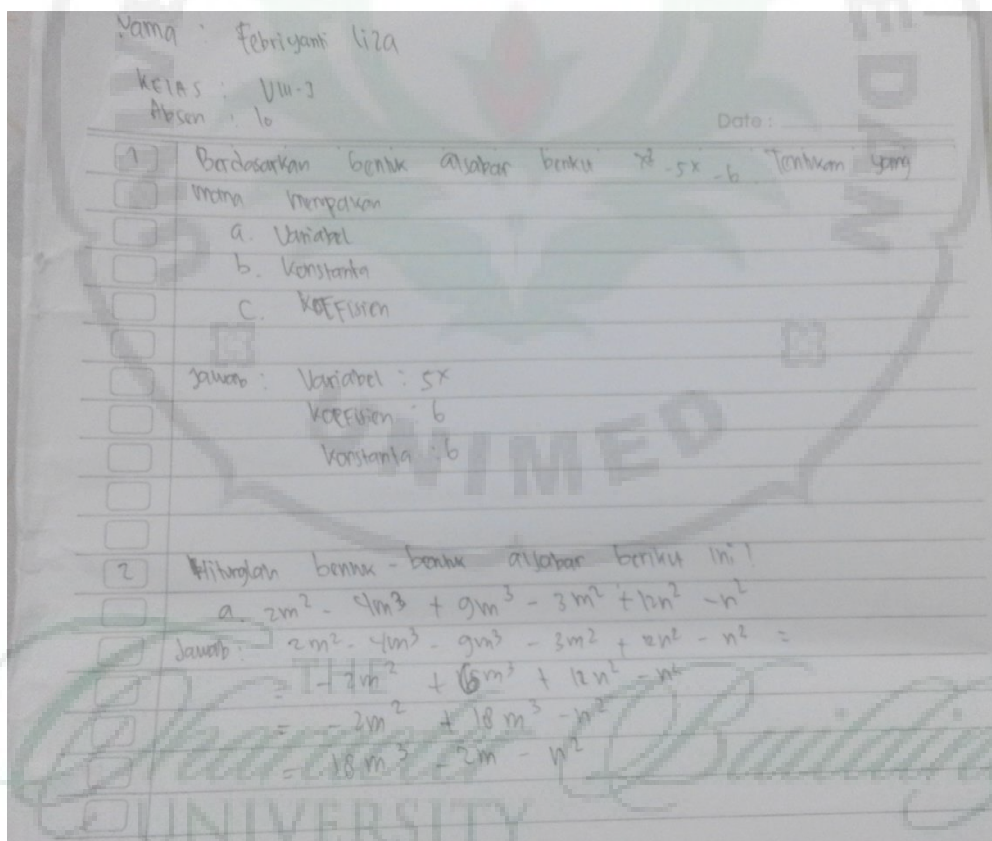 Nama : Febriyanti liza
KELAS : VIII-3
Absen : 10
Date :
1 Berdasarkan bentuk aljabar beriku x² -5x -6 Tentukan yang
mana merupakan
a. Variabel
b. Konstanta
C. KOEFisien
Jawab : Variabel : 5x
KOEFisien : 6
Konstanta : 6
2 Hitunglah bentuk - bentuk aljabar beriku ini !
a. 2m² - 4m³ + 9m³ - 3m² + 12n² - n²
Jawab : 2m² - 4m³ - 9m³ - 3m² + 12n² - n² =
= m² + m³ + 12n² - n²
= - 2m² + 18m³ - n²
= 18m³ - 2m - n²
UNIMED
MEDAN
THE
Character Building
UNIVERSITY